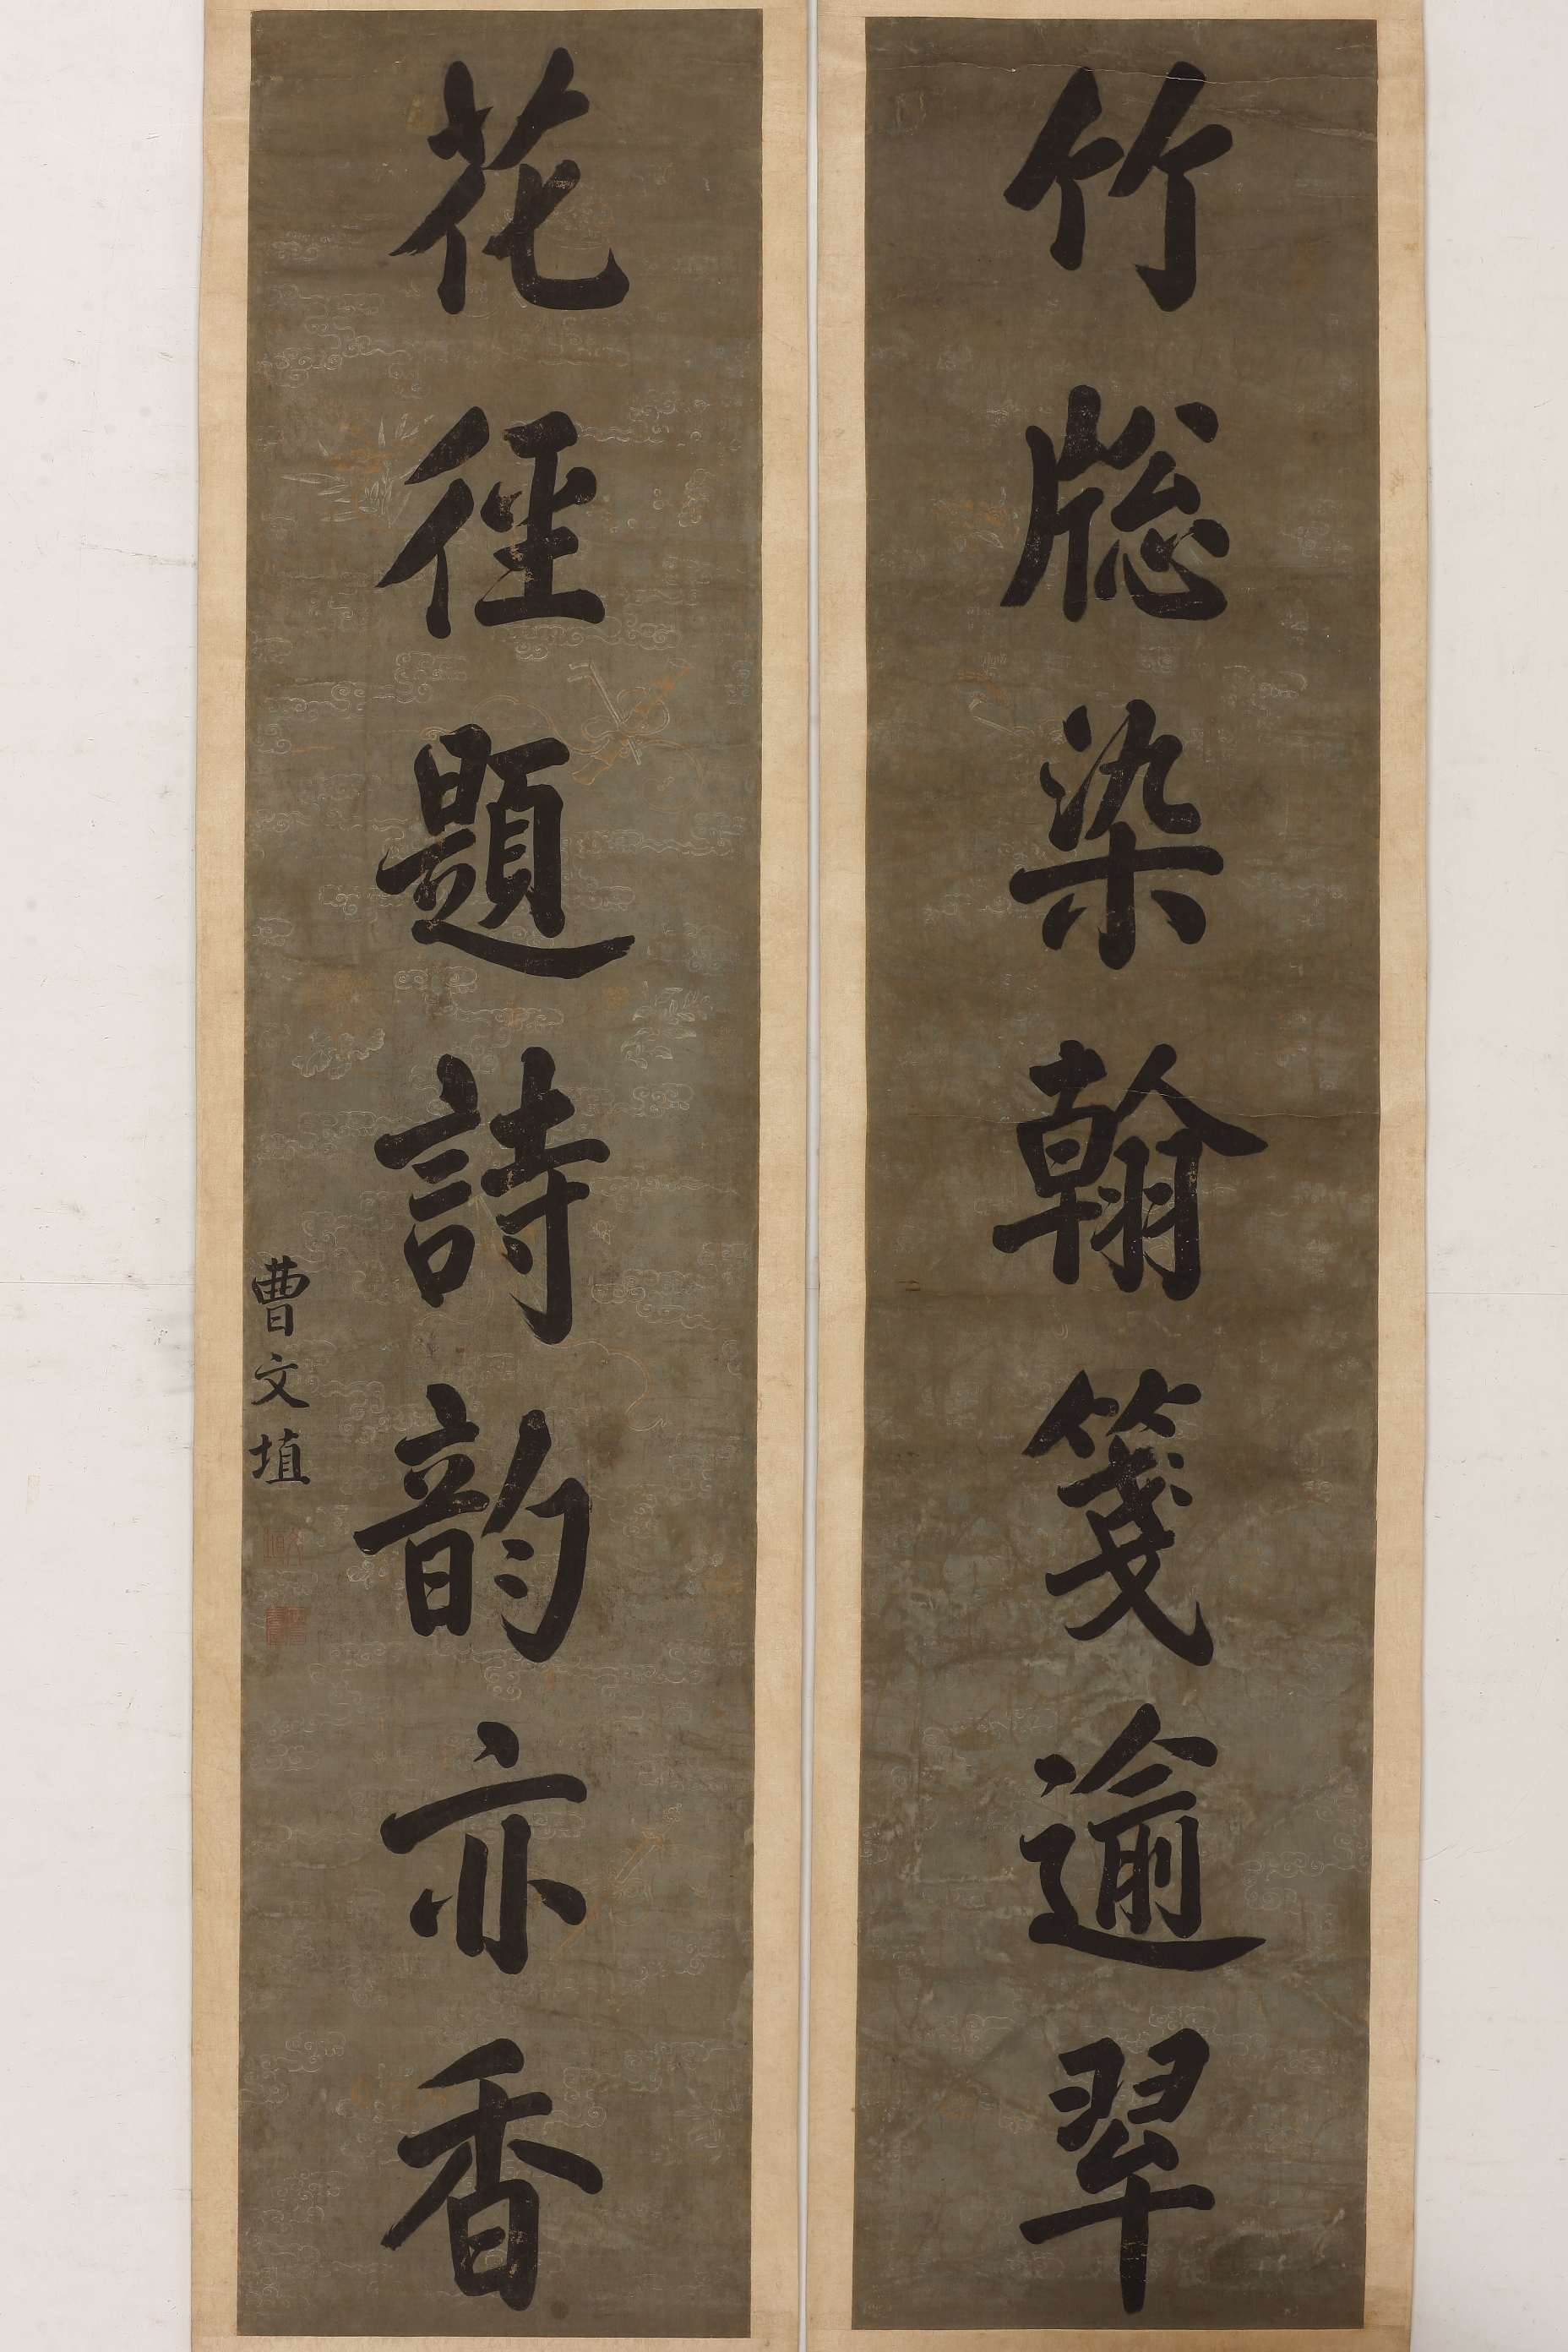 竹牎染翰箋逾翠
花徑題詩韵亦香
曹文埴